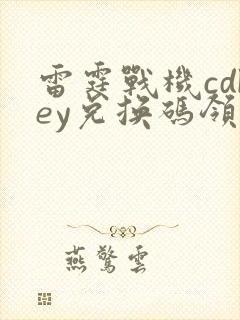 雷霆戰機cdk
ey兌換碼領
燕驚雲